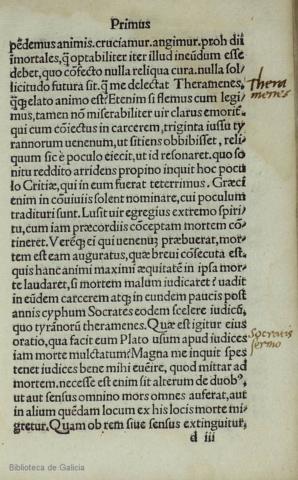 Primus
pẽdemus animis. cruciamur. angimur. proh dii
ĩmortales, q̃ optabiliter iter illud ineũdum esse
debet, quo cõfecto nulla reliqua cura. nulla sol/
licitudo futura sit. q̃ me delectat Theramenes,
elato animo est? Etenim si flemus cum legi/
mus, tamen nõ miserabiliter uir clarus emorit᷑.
qui cum cõiectus in carcerem, triginta iussu ty
rannorum uenenum, ut sitiens obbibisset, reli/
quum sic è poculo eiecit, ut id resonaret. quo so
nitu reddito arridens propino inquit hoc pocu
lo Critiæ, qui in eum fuerat teterrimus. Græci
enim in cõuiuiis solent nominare, cui poculum
tradituri sunt. Lusit uir egregius extremo spiri/
tu, cum iam præcordiis cõceptam mortem cõ
tineret. Verẽq; ei qui uenenũ præbuerat, mor/
tem est eam auguratus, quæ breui cõsecuta est.
quis hanc animi maximi æquitatẽ in ipsa mor/
te laudaret, si mortem malum iudicaret? uadit
in eũdem carcerem atq; in eundem paucis post
annis cyphum Socrates eodem scelere iudicũ,
quo tyrãnorũ theramenes. Quæ est igitur eius
oratio, qua facit eum Plato usum apud iudices
iam morte mulctatum? Magna me inquit spes
tenet iudices bene mihi euẽire, quod mittar ad
mortem. necesse est enim sit alterum de duobꝰ,
ut aut sensus omnino mors omnes auferat, aut
in alium quẽdam locum ex his locis morte mi/
gretur. Quam ob rem siue sensus extinguitur,
d iii
Thera
menes
Socratis
sermo
Biblioteca de Galicia